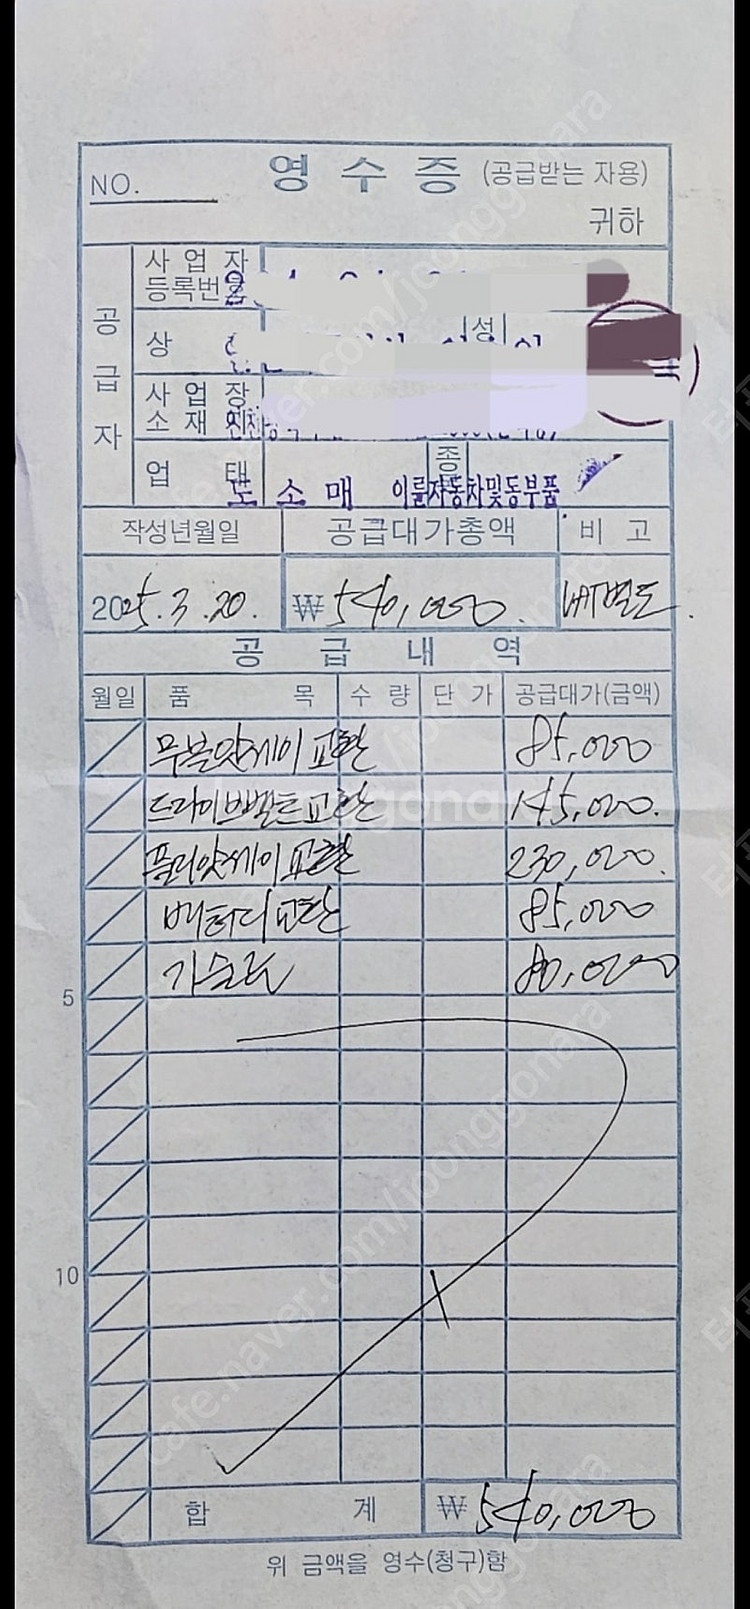 NO. 영수증 (공급받는 자용)
귀하
공급자
사업자
등록번호
상 성
사업장
소재
업태 도소매 종 이륜자동차및동부품
작성년월일 공급대가총액 비고
2025.3.20. ₩540,000. VAT별도.
공급내역
월일 품목 수량 단가 공급대가(금액)
교환 85,000
드라이브벨트교환 145,000.
풀리앗세이교환 230,000.
배터리교환 85,000
5 80,000
10
합계 ₩540,000
위 금액을 영수(청구)함
cafe.naver.com/joonggonara